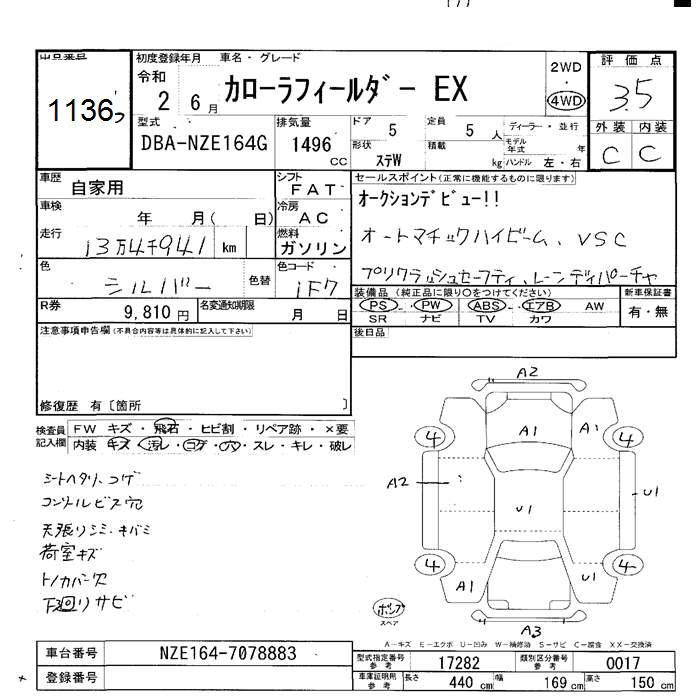 出品番号
1136
初度登録年月 車名・グレード
令和 2 6月 カローラフィールダー EX
2WD・4WD
評価点
3.5
型式 DBA-NZE164G
排気量 1496 cc
ドア 5 定員 5人 ディーラー・並行
形状 ステW 積載 kg モデル年式 年 ハンドル 左・右
外装 内装
C C
車歴 自家用
シフト FAT
セールスポイント(正常に機能するものに限ります)
オークションデビュー!!
車検 年 月( 日)
冷房 AC
オートマチックハイビーム、VSC
走行 13万4千941 km
燃料 ガソリン
色 シルバー 色替
色コード 1F7
プリクラッシュセーフティ、レーンディパーチャ
R券 9,810円 名変通知期限 月 日
装備品(純正品に限り○をつけてください) 新車保証書
PS・PW ABS・エアB AW 有・無
SR ナビ TV カワ
注意事項申告欄(不具合内容等は具体的に記入して下さい)
後日品
修復歴 有〔箇所 〕
検査員記入欄
FW キズ・飛石・ヒビ割・リペア跡・×要
内装 キズ・汚レ・コゲ・穴・スレ・キレ・破レ
シートヘタリ、コゲ
コンソールビス穴
天張リシミ・キバミ
荷室キズ
トノカバー欠
下廻リサビ
A2
A1 A1
4 4
A2 U1 U1
4 4
A1 U1
A3
スペア
A-キズ E-エクボ U-凹み W-補修跡 S-サビ C-腐食 XX-交換済
車台番号 NZE164-7078883
登録番号
型式指定番号参考 17282 類別区分番号参考 0017
車庫証明用参考 長さ 440cm 幅 169cm 高さ 150cm